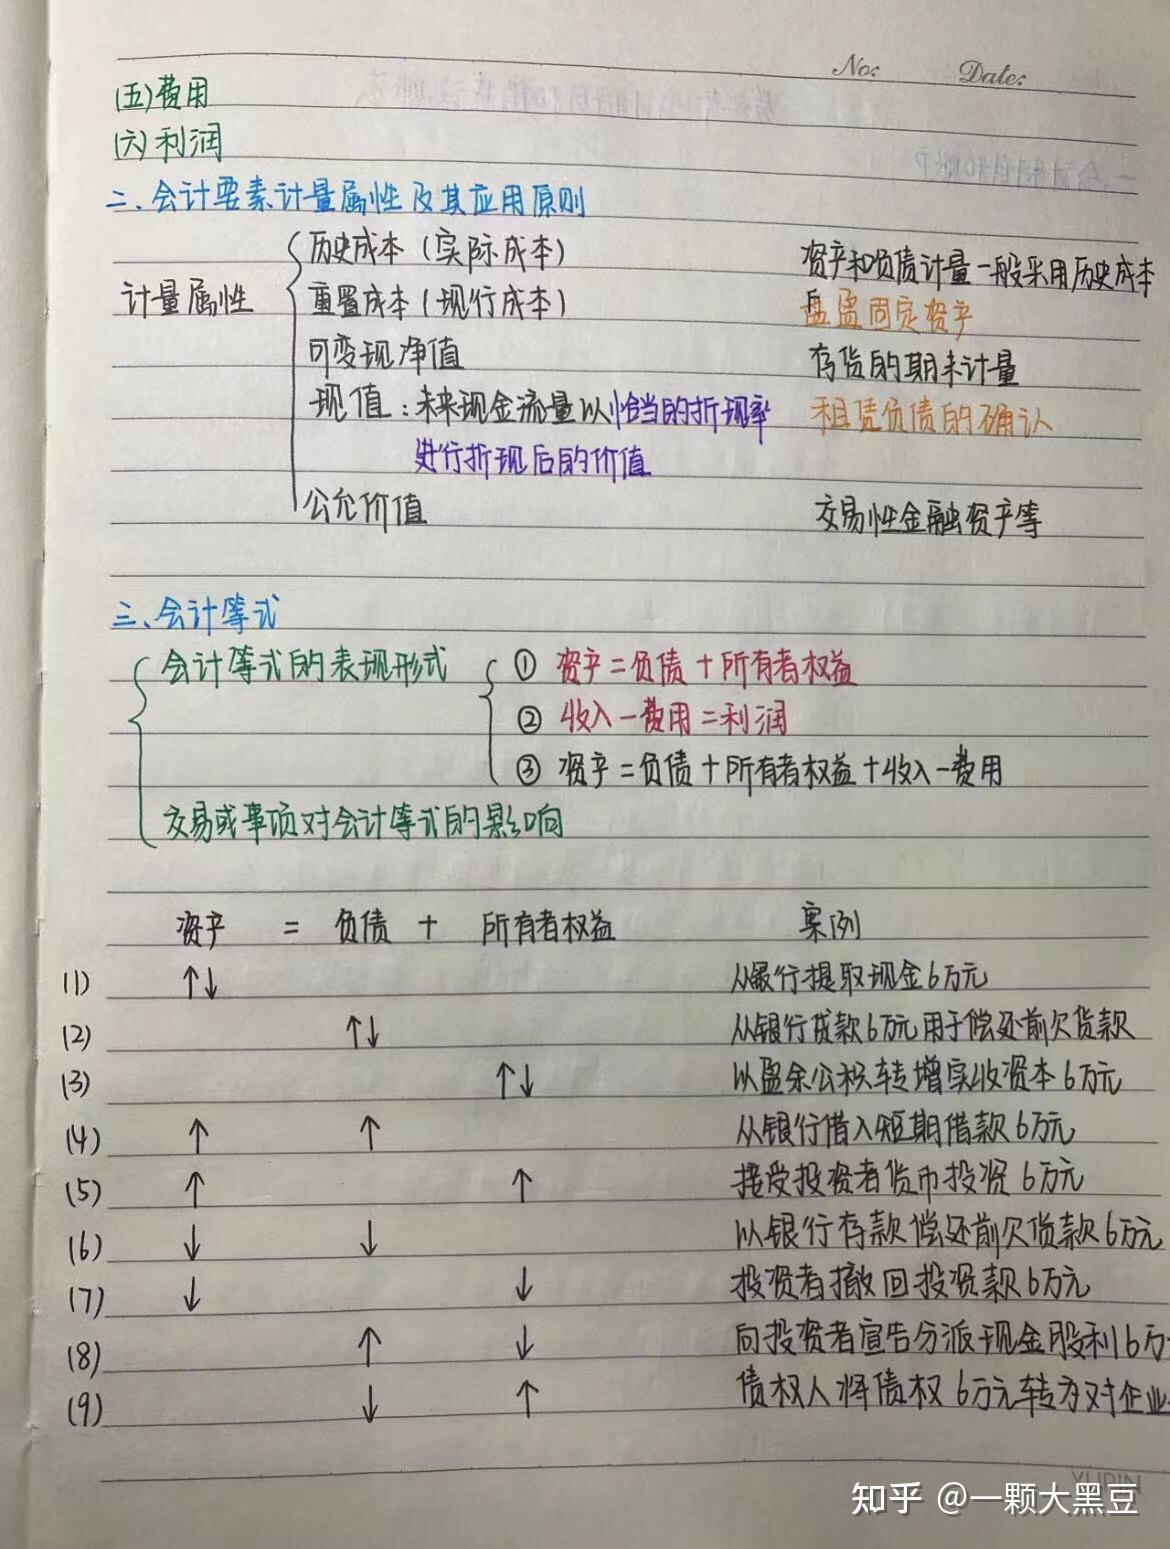 No: Date:
(五)费用
(六)利润
二、会计要素计量属性及其应用原则
历史成本(实际成本) 资产和负债计量一般采用历史成本
计量属性 重置成本(现行成本) 盘盈固定资产
可变现净值 存货的期末计量
现值:未来现金流量以恰当的折现率 租赁负债的确认
进行折现后的价值
公允价值 交易性金融资产等
三、会计等式
会计等式的表现形式 ① 资产=负债+所有者权益
② 收入-费用=利润
③ 资产=负债+所有者权益+收入-费用
交易或事项对会计等式的影响
资产 = 负债 + 所有者权益 案例
(1) ↑↓ 从银行提取现金6万元
(2) ↑↓ 从银行贷款6万元用于偿还前欠货款
(3) ↑↓ 以盈余公积转增实收资本6万元
(4) ↑ ↑ 从银行借入短期借款6万元
(5) ↑ ↑ 接受投资者货币投资6万元
(6) ↓ ↓ 以银行存款偿还前欠货款6万元
(7) ↓ ↓ 投资者撤回投资款6万元
(8) ↑ ↓ 向投资者宣告分派现金股利6万
(9) ↓ ↑ 债权人将债权6万元转为对企业
YURIN
知乎 @一颗大黑豆